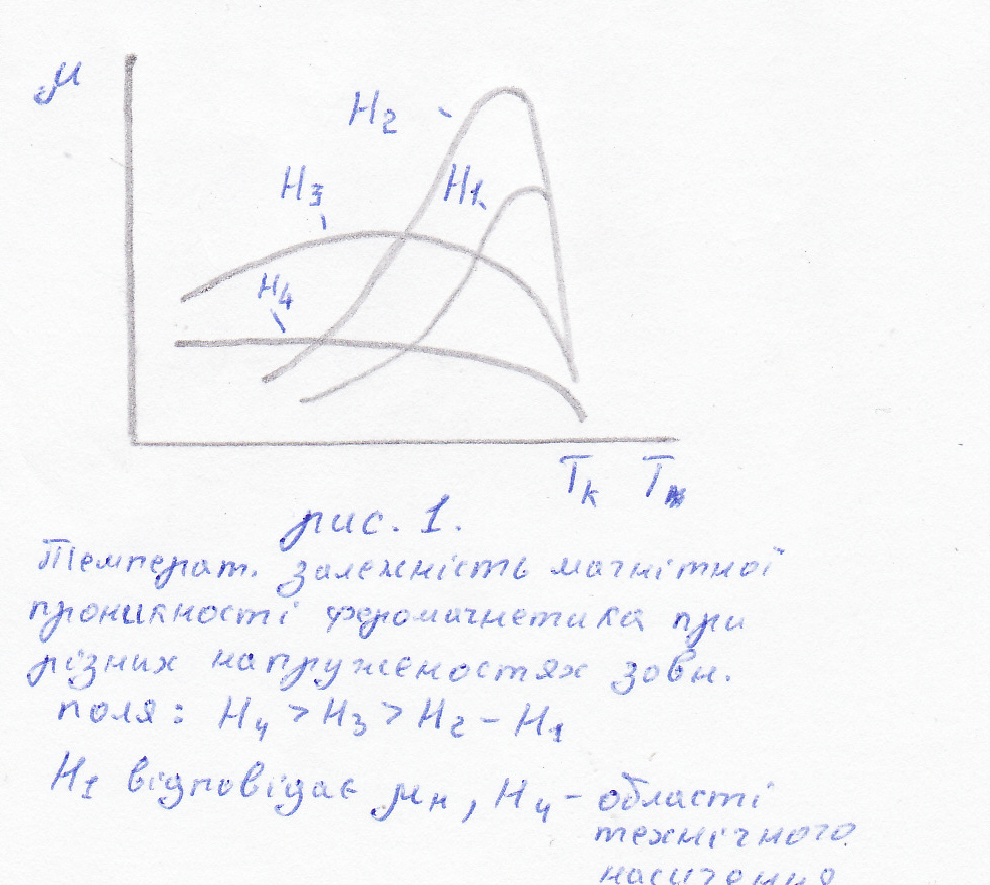 μ
H2
H3
H1
H4
Tк Tк
рис. 1.
Температ. залежність магнітної
проникності феромагнетика при
різних напруженостях зовн.
поля: H4 > H3 > H2 – H1
H1 відповідає μн, H4 – області
технічного
насичення